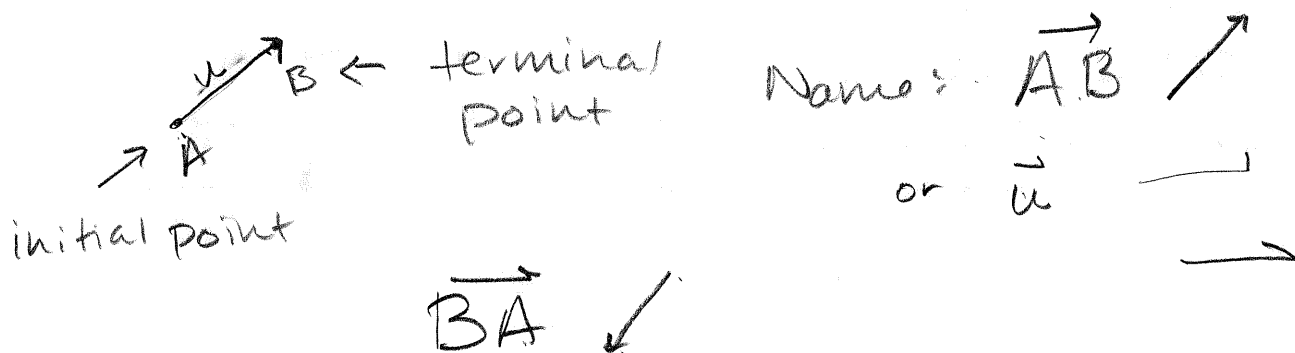 u
B ← terminal
point
A
initial point
Name: $\overrightarrow{AB}$
or $\vec{u}$
$\overrightarrow{BA}$